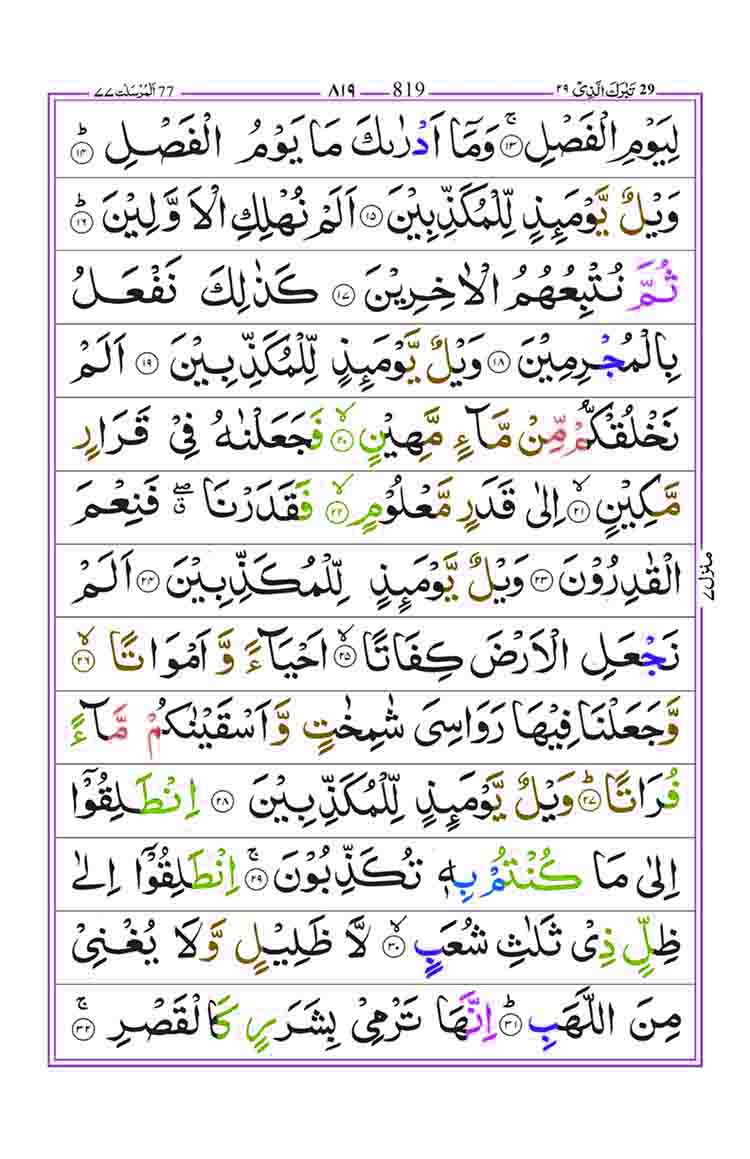 29 تَبٰرَكَ الَّذِیْ ۲۹ 819 ۸۱۹ 77 اَلْمُرْسَلٰت ۷۷
لِیَوْمِ الْفَصْلِۚ ۱۳ وَمَاۤ اَدْرٰىكَ مَا یَوْمُ الْفَصْلِؕ ۱۴
وَیْلٌ یَّوْمَىِٕذٍ لِّلْمُكَذِّبِیْنَ ۱۵ اَلَمْ نُهْلِكِ الْاَوَّلِیْنَؕ ۱۶
ثُمَّ نُتْبِعُهُمُ الْاٰخِرِیْنَ ۱۷ كَذٰلِكَ نَفْعَلُ
بِالْمُجْرِمِیْنَ ۱۸ وَیْلٌ یَّوْمَىِٕذٍ لِّلْمُكَذِّبِیْنَ ۱۹ اَلَمْ
نَخْلُقْكُّمْ مِّنْ مَّآءٍ مَّهِیْنٍۙ ۲۰ فَجَعَلْنٰهُ فِیْ قَرَارٍ
مَّكِیْنٍۙ ۲۱ اِلٰی قَدَرٍ مَّعْلُوْمٍۙ ۲۲ فَقَدَرْنَا ۖۗ فَنِعْمَ
الْقٰدِرُوْنَ ۲۳ وَیْلٌ یَّوْمَىِٕذٍ لِّلْمُكَذِّبِیْنَ ۲۴ اَلَمْ
نَجْعَلِ الْاَرْضَ كِفَاتًاۙ ۲۵ اَحْیَآءً وَّ اَمْوَاتًاۙ ۲۶
وَّجَعَلْنَا فِیْهَا رَوَاسِیَ شٰمِخٰتٍ وَّاَسْقَیْنٰكُمْ مَّآءً
فُرَاتًاؕ ۲۷ وَیْلٌ یَّوْمَىِٕذٍ لِّلْمُكَذِّبِیْنَ ۲۸ اِنْطَلِقُوْۤا
اِلٰی مَا كُنْتُمْ بِهٖ تُكَذِّبُوْنَۚ ۲۹ اِنْطَلِقُوْۤا اِلٰی
ظِلٍّ ذِیْ ثَلٰثِ شُعَبٍۙ ۳۰ لَّا ظَلِیْلٍ وَّلَا یُغْنِیْ
مِنَ اللَّهَبِؕ ۳۱ اِنَّهَا تَرْمِیْ بِشَرَرٍ كَالْقَصْرِۚ ۳۲
منزل ۷